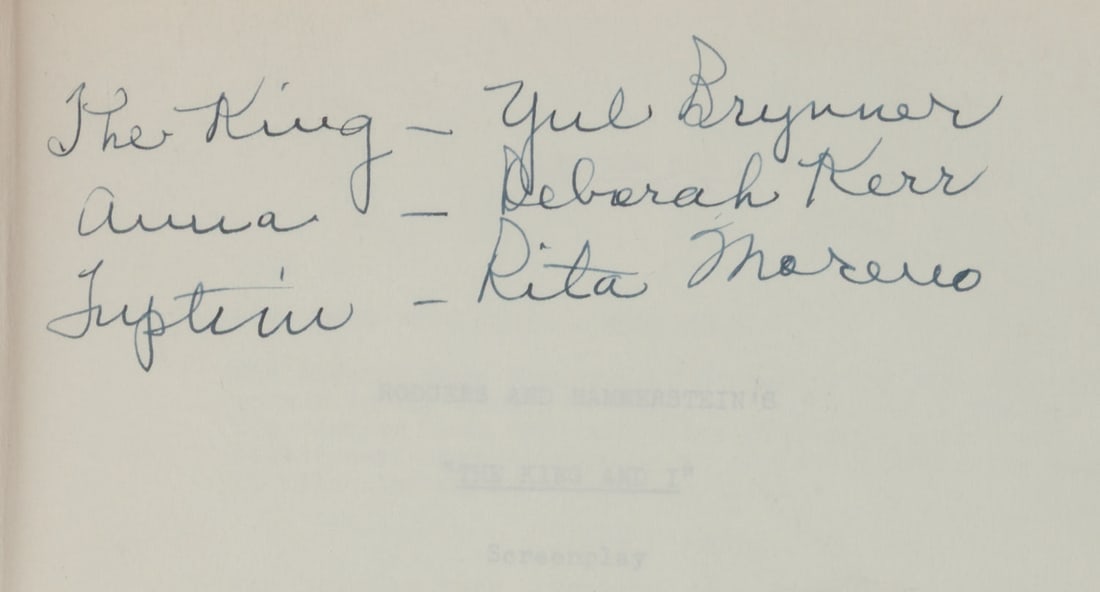 The King – Yul Brynner
Anna – Deborah Kerr
Tuptim – Rita Moreno
RODGERS AND HAMMERSTEIN'S
"THE KING AND I"
Screenplay